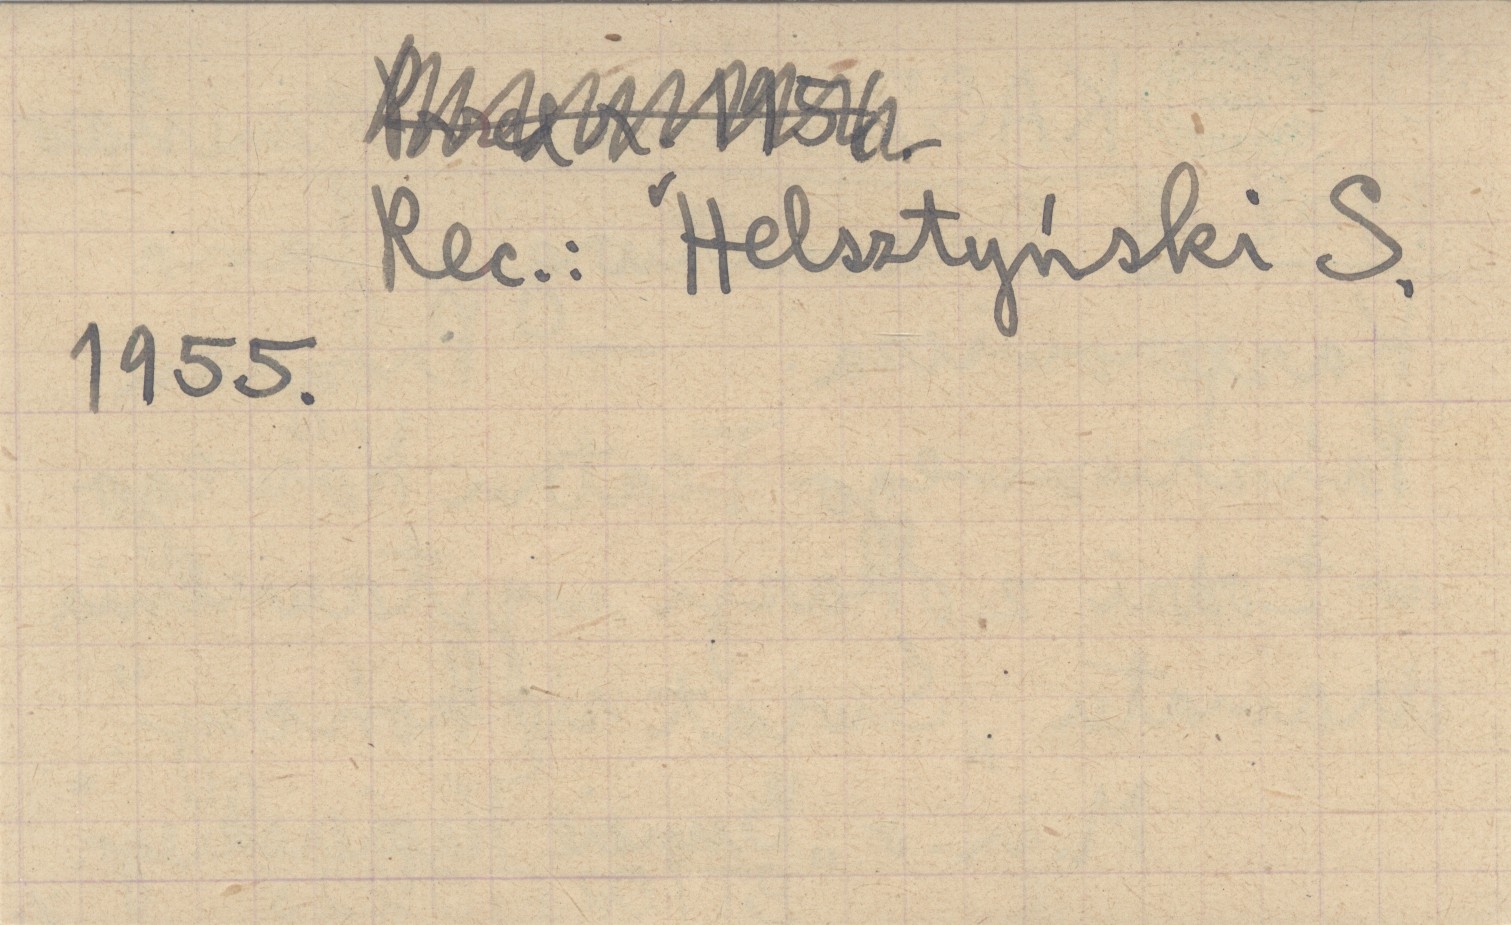 Rec.: Helsztyński S.
1955.